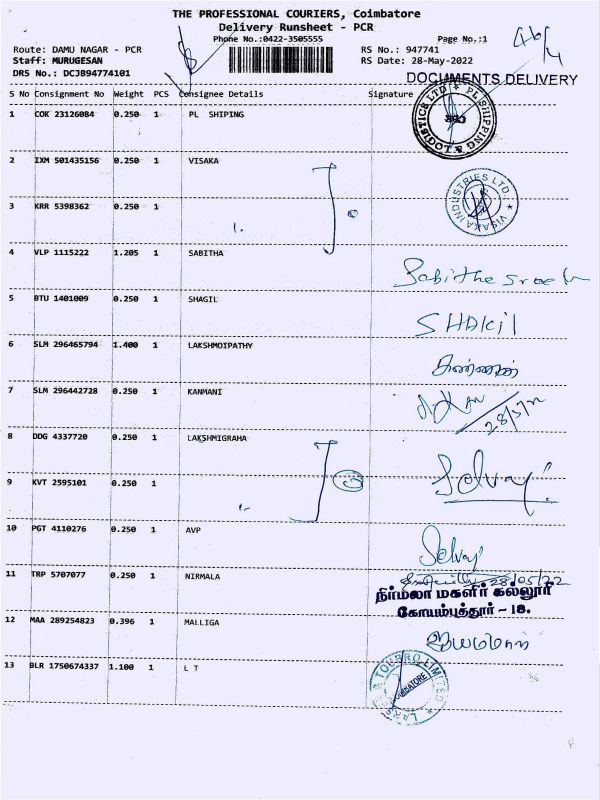 THE PROFESSIONAL COURIERS, Coimbatore
Delivery Runsheet - PCR
Phone No.:0422-3505555
Page No.:1
Route: DAMU NAGAR - PCR
RS No.: 947741
Staff: MURUGESAN
RS Date: 28-May-2022
DRS No.: DCJB94774101
46/4
DOCUMENTS DELIVERY
S No Consignment No Weight PCS Consignee Details Signature
1 COK 23126084 0.250 1 PL SHIPING
PL SHIPPING & LOGISTICS LTD
2 IXM 501435156 0.250 1 VISAKA
VISAKA INDUSTRIES LTD.
3 KRR 5398362 0.250 1
4 VLP 1115222 1.205 1 SABITHA
5 BTU 1401009 0.250 1 SHAGIL
SHAKIL
6 SLM 296465794 1.400 1 LAKSHMOIPATHY
கண்ணன்
7 SLM 296442728 0.250 1 KANMANI
8 DDG 4337720 0.250 1 LAKSHMIGRAHA
9 KVT 2595101 0.250 1
Selvaj
10 PGT 4110276 0.250 1 AVP
Selvaj
11 TRP 5707077 0.250 1 NIRMALA
28/05/22
நிர்மலா மகளிர் கல்லூரி
கோயம்புத்தூர் - 18.
12 MAA 289254823 0.396 1 MALLIGA
13 BLR 1750674337 1.100 1 L T
TOUBRO LIMITED
COIMBATORE